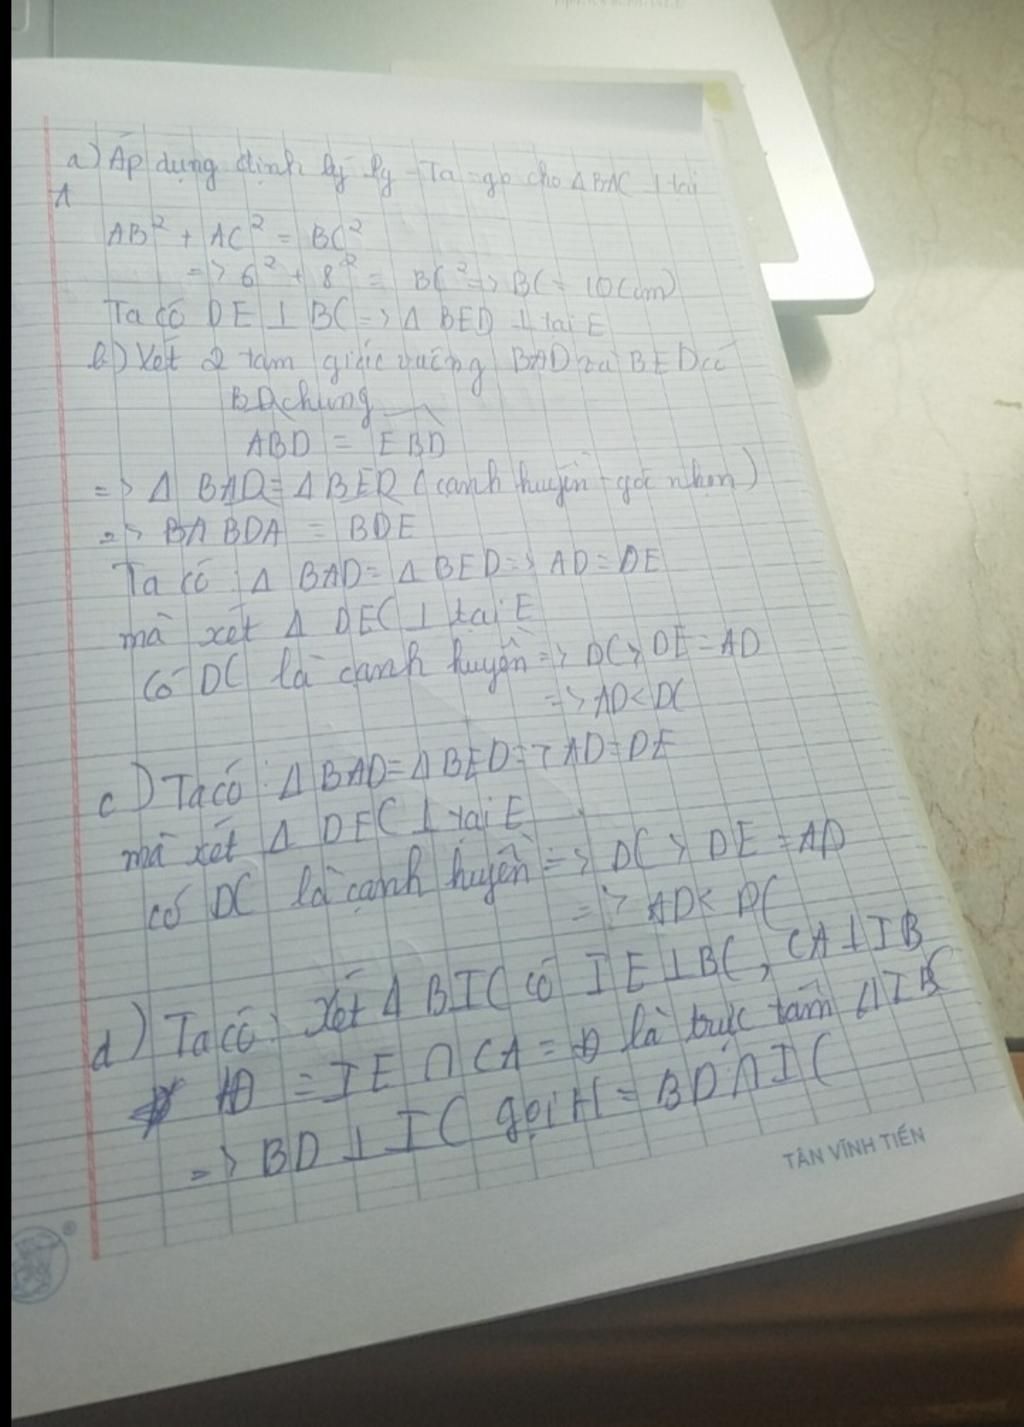 a) Áp dụng định lý Py-Ta-go cho Δ BAC ⊥ tại
A
AB² + AC² = BC²
=> 6² + 8² = BC² => BC = 10(cm)
Ta có DE ⊥ BC => Δ BED ⊥ tại E
b) Xét 2 tam giác vuông BAD và BED có
BD chung
ABD = EBD
=> Δ BAD = Δ BED (cạnh huyền - góc nhọn)
=> BA BDA = BDE
Ta có : Δ BAD = Δ BED => AD = DE
mà xét Δ DEC ⊥ tại E
có DC là cạnh huyền => DC > DE = AD
=> AD < DC
c) Ta có : Δ BAD = Δ BED => AD = DE
mà xét Δ DEC ⊥ tại E
có DC là cạnh huyền => DC > DE = AD
=> AD < DC
d) Ta có : Xét Δ BIC có IE ⊥ BC, CA ⊥ IB
D = IE ∩ CA => D là trực tâm Δ IBC
=> BD ⊥ IC gọi H = BD ∩ IC
TÂN VĨNH TIẾN